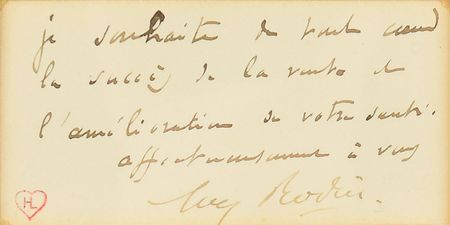 je souhaite de tout coeur
le succès de la vente et
l'amélioration de votre santé.
affectueusement à vous
Aug Rodin.
HL